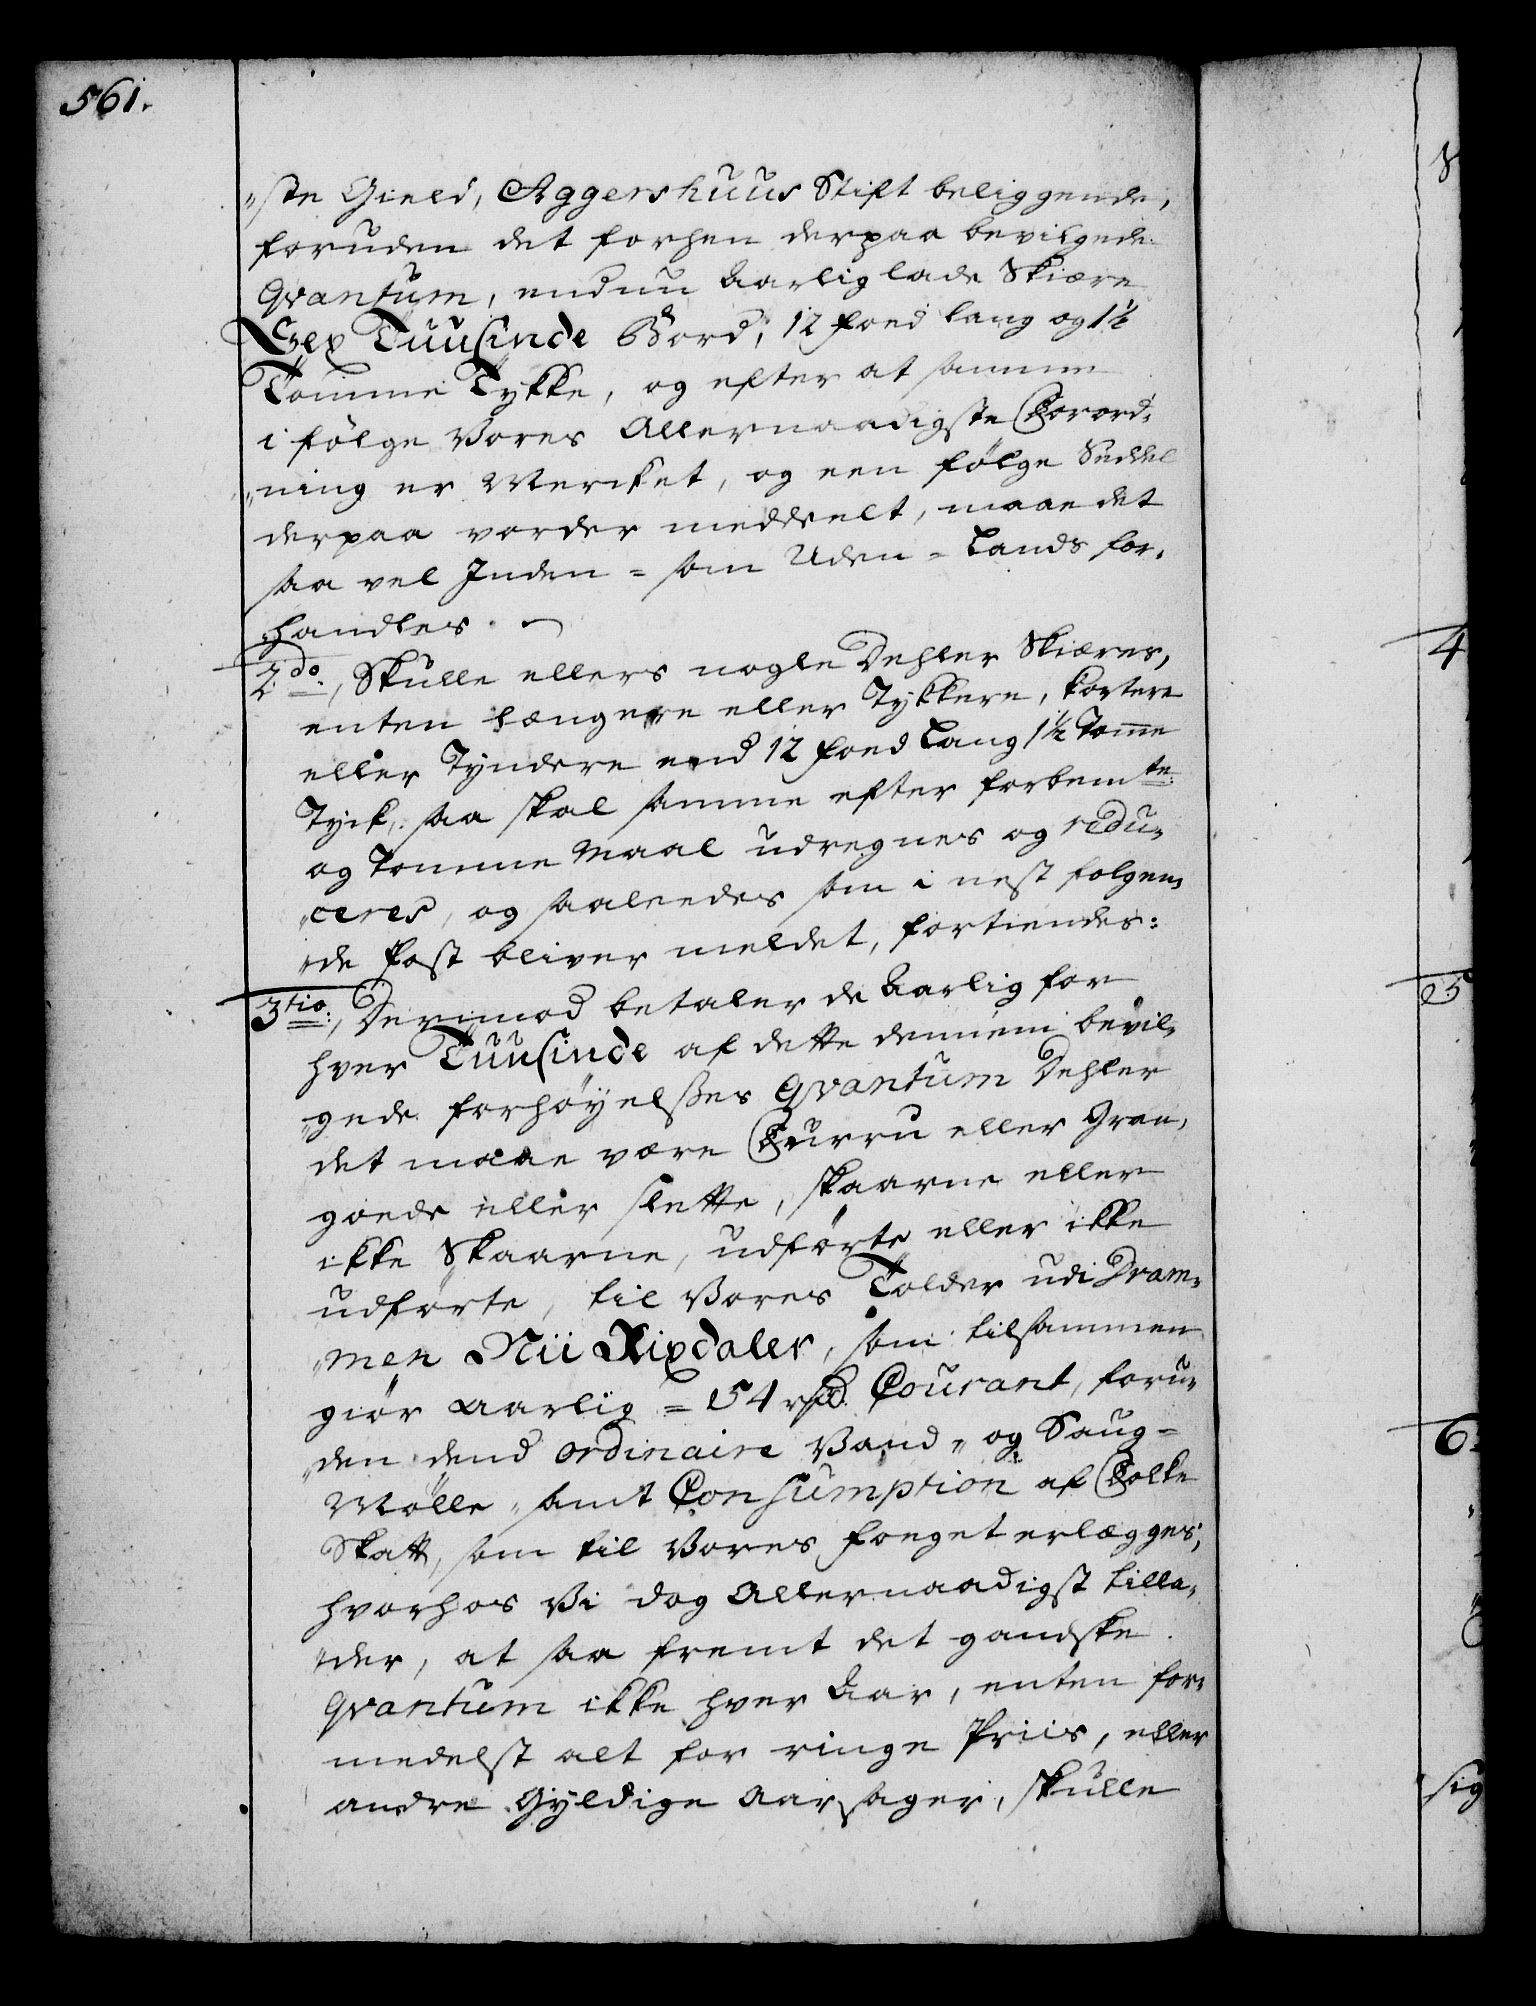 561.
"ste Gield, Aggershuus Stift beliggende,
foruden det forhen derpaa bevilgede
Qvantum, endnu Aarlig lade Skiære
Sex Tuusinde Bord, 12 foed lang og 1½
Tomme Tykke, og efter at samme
i følge Vores Allernaadigste Forord„
„ning er Mercket, og een følge Seddel
derpaa vorder meddeelt, maae det
saa vel Inden = som Uden = Lands for„
„handles.
2do, Skulle ellers nogle Dehler Skiæres,
enten længere eller Tykkere, kortere
eller Tyndere end 12 foed Lang 1½ Tomme
Tyck, saa skal samme efter forbemte
og Tomme Maal udregnes og redu„
„ceres, og saaleedes som i nest folgen„
„de Post bliver meldet, fortiendes:
3tio, Derimod betaler de Aarlig for
hver Tuusinde af dette dennem bevil„
„gede forhøyelsses Qvantum Dehler
det maae være Furru eller Gran,
goede eller slette, skaarne eller
ikke Skaarne, udførte eller ikke
udførte, til Vores Tolder udi Dram„
„men Nii Rixdaler, som tilsammen
giør aarlig = 54 rd. Courant, foru„
„den dend ordinaire Vand„ og Saug=
Mølle„ samt Consumption af Folke
Skatt, som til Vores foeget erlægges,
hvorhos Vi dog Allernaadigst tilla„
„der, at saa fremt det gandske
Qvantum ikke hver Aar, enten for„
medelst alt for ringe Priis, eller
andre Gyldige Aarsager, skulle
4
5
6
sig